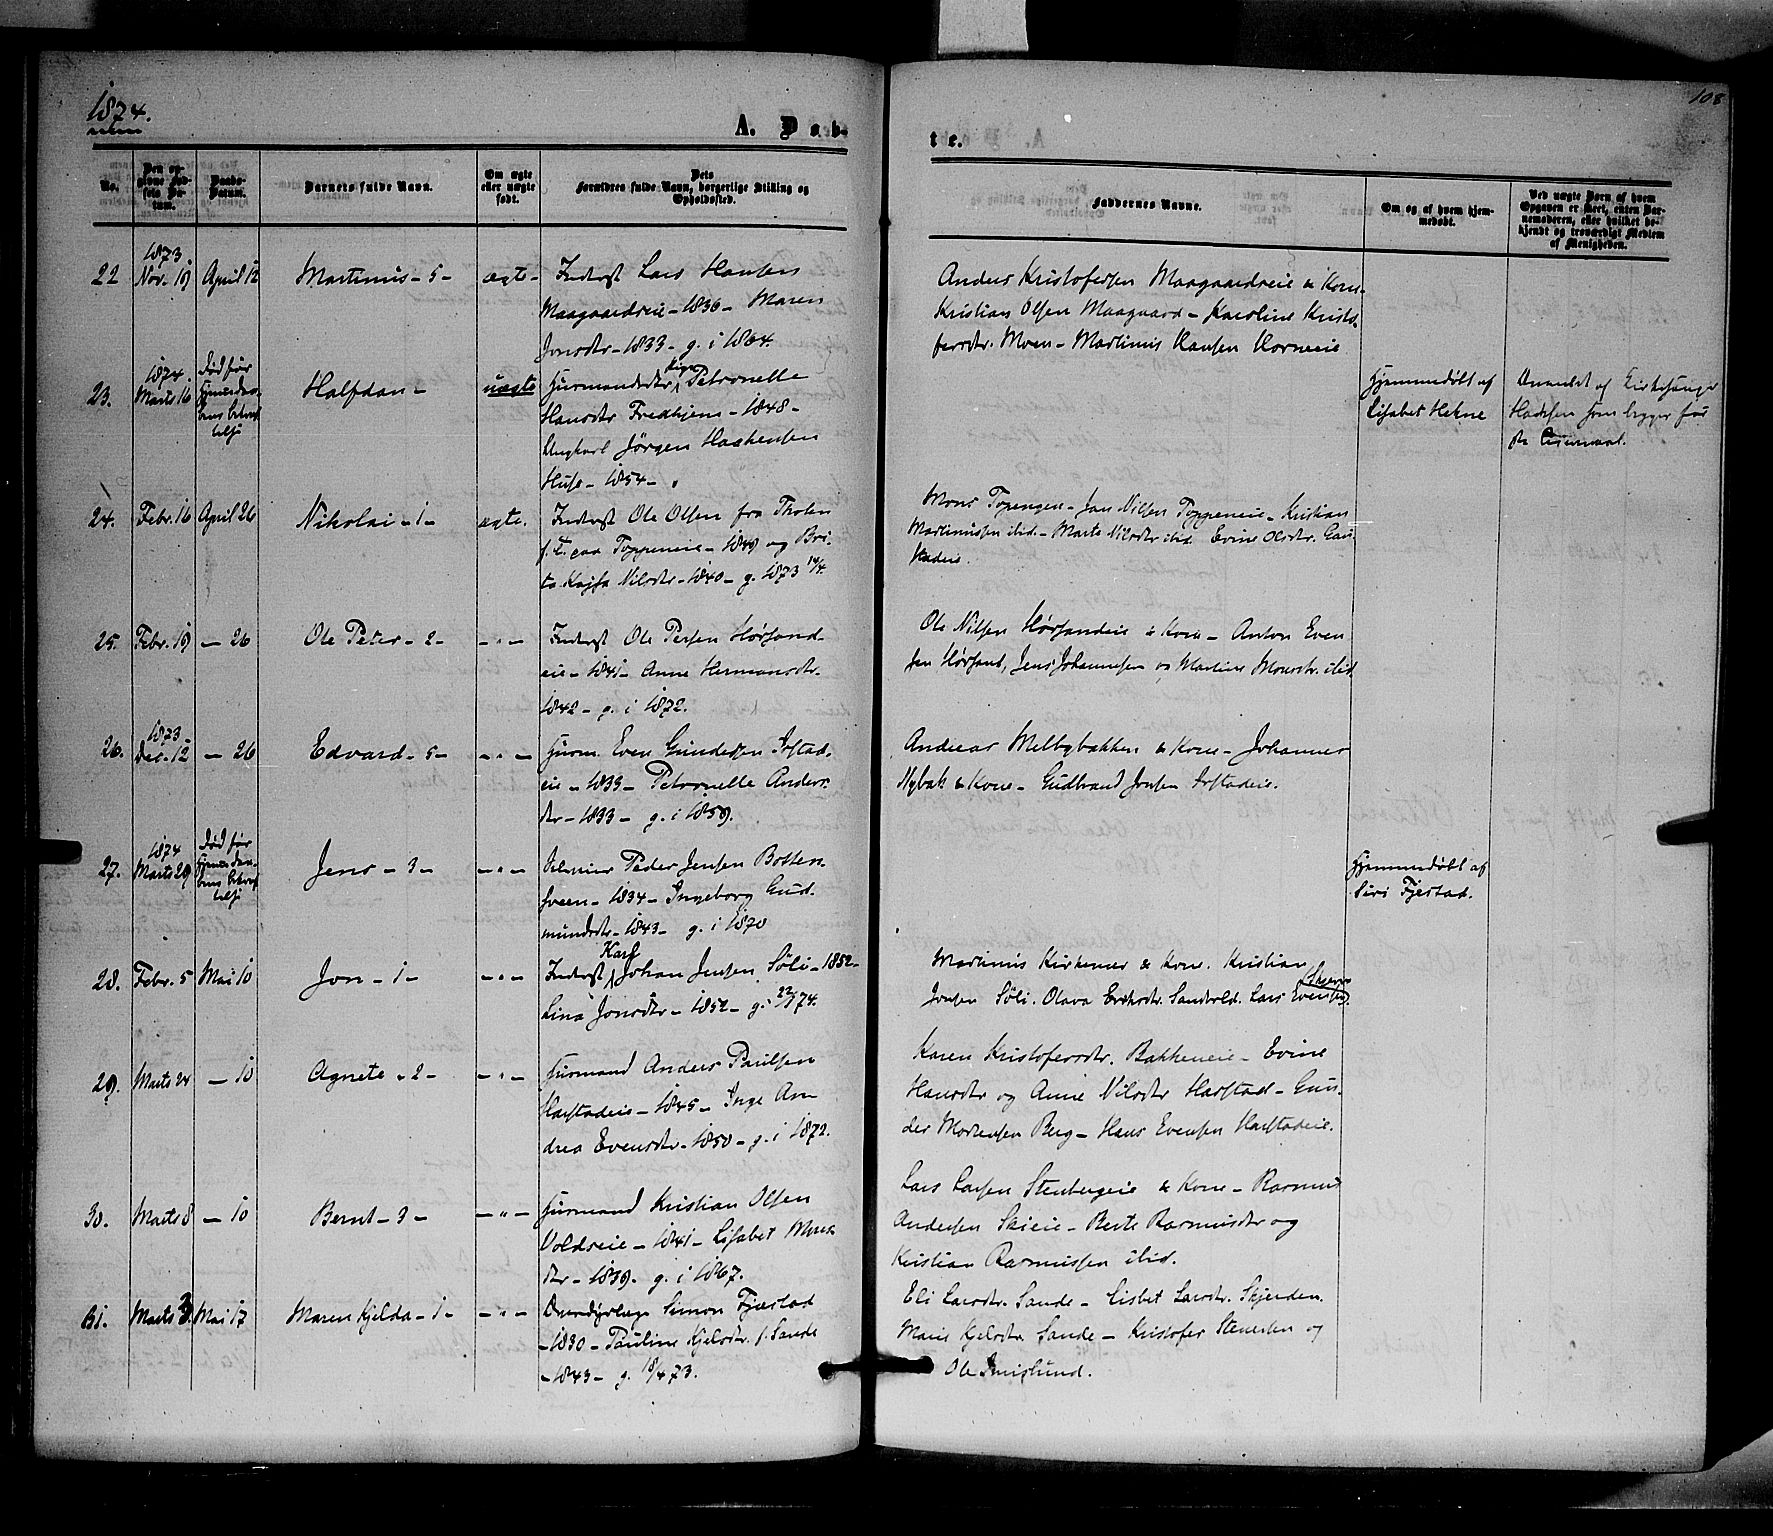 1874.
108
A. Dåb-
te.
No.
Den op-
givne Fød-
sels Da-
tum.
Daabs-
Datum.
Barnets fulde Navn.
Om ægte
eller uægte
født.
Dets
Forældres fulde Navn, borgerlige Stilling og
Opholdssted.
Faddernes Navne.
Om og af hvem hjem-
medøbt.
Ved uægte Børn af hvem
Opgaven er skeet, enten Bar-
nemoderen, eller hvilket be-
kjendt og troværdigt Medlem
af Menigheden.
22
1873
Nov. 19
April 12
Martinus - 5 -
ægte -
Inderst Lars Hansen
Maagaardseie - 1836 - Maren
Jonsdtr - 1833 - g. i 1864.
Anders Kristofersen Maagaardseie & Kone.
Kristian Olsen Maagaard - Karoline Kristo-
fersdtr. Moen - Martinus Hansen Horneeie
23.
1874.
Marts 16
død før
hjemmedaa-
bens bekræf-
telse
Halfdan -
uægte
Huusmandsdtr Pige Petronelle
Hansdtr Fredhjem - 1848 -
Ungkarl Jörgen Haakensen
Huse - 1854 -
Hjemmedøbt af
Lisabet Hekne
Anmeldt af Kirkesanger
24.
Febr. 16
April 26
Nikolai - 1 -
ægte.
Inderst Ole Olsen fra Thoten
f. T. paa Toppeneie - 1849 og Bri-
ta Kajsa Nilsdtr - 1840 - g. 1873 14/4.
Mons Topengen - Jan Nilsen Toppeneie - Kristian
Martinussen ibid. - Marte Nilsdtr ibid Evine Olsdtr. Gau-
stadeie.
25.
Febr. 19
- 26
Ole Peter - 2 -
- " -
Inderst Ole Persen Hörsand-
eie - 1841 - Anne Hermansdtr.
1842 - g. i 1872.
Ole Nilsen Hörsandeie & Kone - Anton Even-
sen Hörsand, Jens Johannesen og Martine Monsdtr. ibid
26.
1873 -
Dec. 12
- 26
Edvard - 5 -
- " -
Husm. Even Gundersen
eie - 1833 - Petronelle Anders-
dtr - 1833 - g. i 1859.
Andreas Melbybakken & Kone - Johannes
Nybak & Kone - Gudbrand Jonsen
27.
1874
Marts 29
død før
hjemmedaa-
bens bekræf-
telse
Jens - 3 -
- " -
Selveier Peder Jensen Botten-
sveen - 1834 - Ingeborg Gud-
mundsdtr - 1843 - g. i 1870
Hjemmedøbt af
Siri Fjestad.
28.
Febr. 5
Mai 10
Jon - 1 -
- " -
Inderst Karl Johan Jensen Söli - 1852 -
Lina Jonsdtr - 1852 - g. 22/1 74.
Martinus Kirkemoe & Kone. Kristian
Jonsen Söli. Olava Eriksdtr. Sandvold. Lars Evensen
29.
Marts 24
- 10
Agnete - 2 -
- " -
Husmand Anders Paulsen
Harstadeie - 1845 - Inge An-
drea Evensdtr - 1850 - g. i 1872.
Karen Kristofersdtr. Bakkeneie - Evine
Hansdtr og Anne Nilsdtr Harstad - Gun-
der Mortensen Berg - Hans Evensen Harstadeie.
30.
Marts 8
- 10
Bernt - 3 -
- " -
Husmand Kristian Olsen
Voldseie - 1841 - Lisabet Mons-
dtr - 1839. g. i 1867.
Lars Larsen Stenbergeie & Kone - Rasmus
Andersen Skieie - Berte Rasmusdtr og
Kristian Rasmussen ibid.
31.
Marts 3.
Mai 17
Maren Kjelda - 1 -
- " -
Overdyrlæge Simon Fjæstad
- 1830 - Pauline Kjelsdtr. f. Sande
- 1843 - g. 18/4 73.
Eli Larsdtr. Sande - Lisbet Larsdtr. Skjerden.
Marie Kjelsdtr Sande - Kristofer Stenersen og
Ole Smislund.